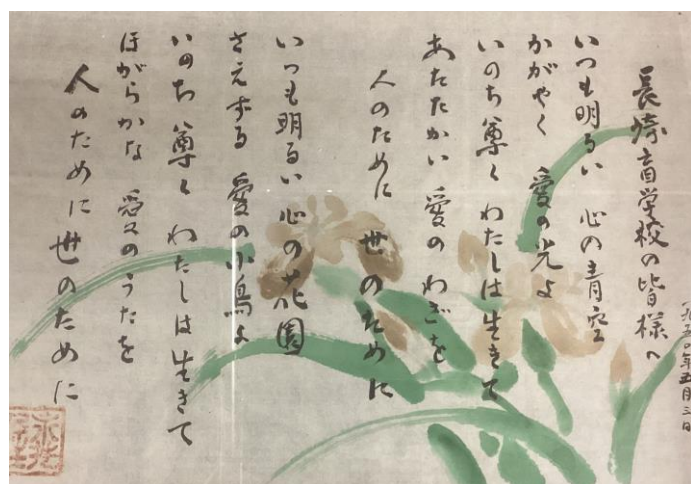 一九五〇年五月三日
長崎盲学校の皆様へ
いつも明るい 心の青空
かがやく 愛の光よ
いのち尊く わたしは生きて
あたたかい 愛の わざを
人のために 世のために
いつも明るい 心の花園
さえずる 愛の小鳥よ
いのち尊く わたしは生きて
ほがらかな 愛のうたを
人のために 世のために